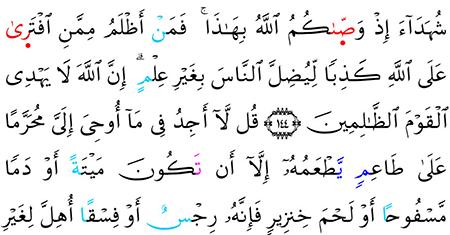 شُهَدَآءَ إِذْ وَصَّىٰكُمُ ٱللَّهُ بِهَٰذَا ۚ فَمَنْ أَظْلَمُ مِمَّنِ ٱفْتَرَىٰ
عَلَى ٱللَّهِ كَذِبًا لِّيُضِلَّ ٱلنَّاسَ بِغَيْرِ عِلْمٍ ۗ إِنَّ ٱللَّهَ لَا يَهْدِى
ٱلْقَوْمَ ٱلظَّٰلِمِينَ ۝١٤٤ قُل لَّآ أَجِدُ فِى مَآ أُوحِىَ إِلَىَّ مُحَرَّمًا
عَلَىٰ طَاعِمٍ يَطْعَمُهُۥٓ إِلَّآ أَن تَكُونَ مَيْتَةً أَوْ دَمًا
مَّسْفُوحًا أَوْ لَحْمَ خِنزِيرٍ فَإِنَّهُۥ رِجْسٌ أَوْ فِسْقًا أُهِلَّ لِغَيْرِ